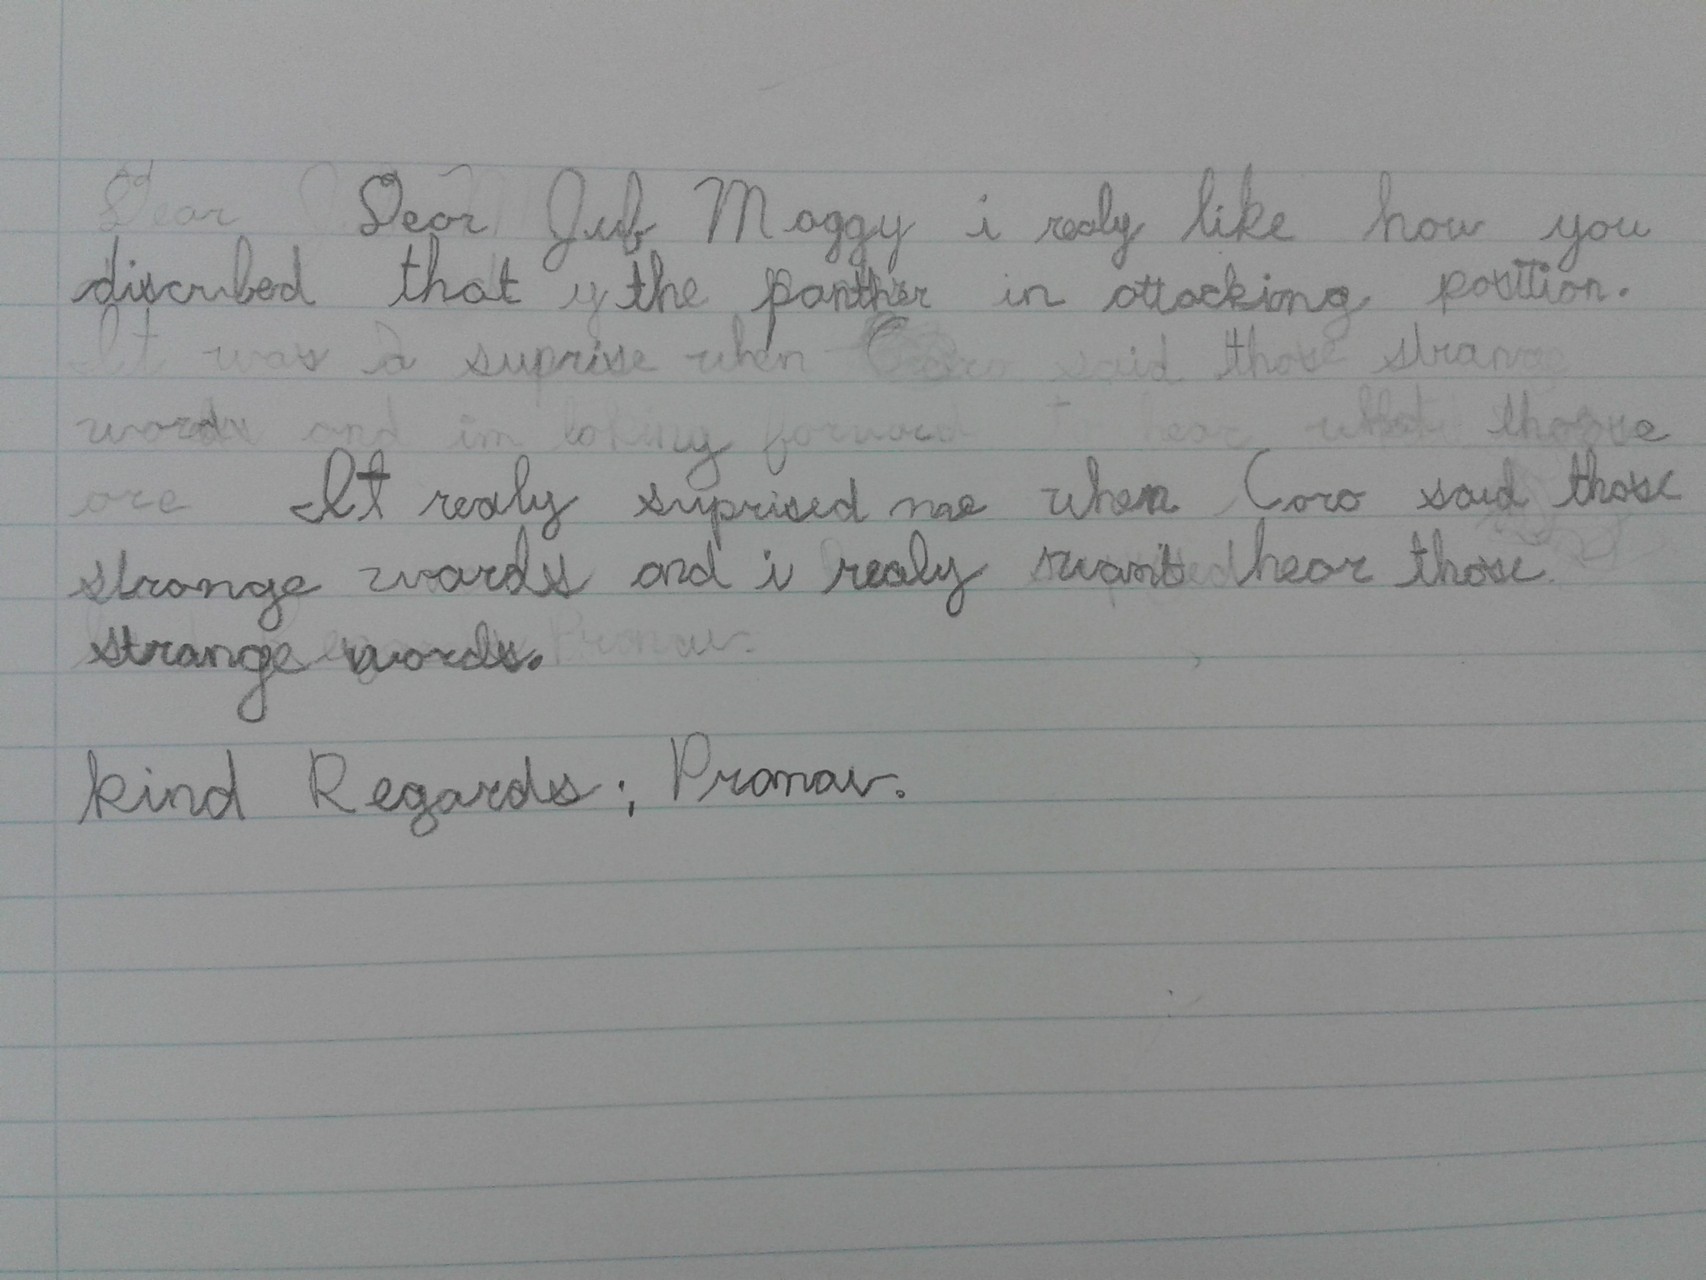 Dear Dear Jub Maggy i realy like how you
discribed that y the panther in attacking position.
It was a suprise when Coro said those strange
words and im loking forward to hear what those
are It realy suprised me when Coro said those
strange words and i realy want hear those
strange words. Pranav.
kind Regards; Pranav.